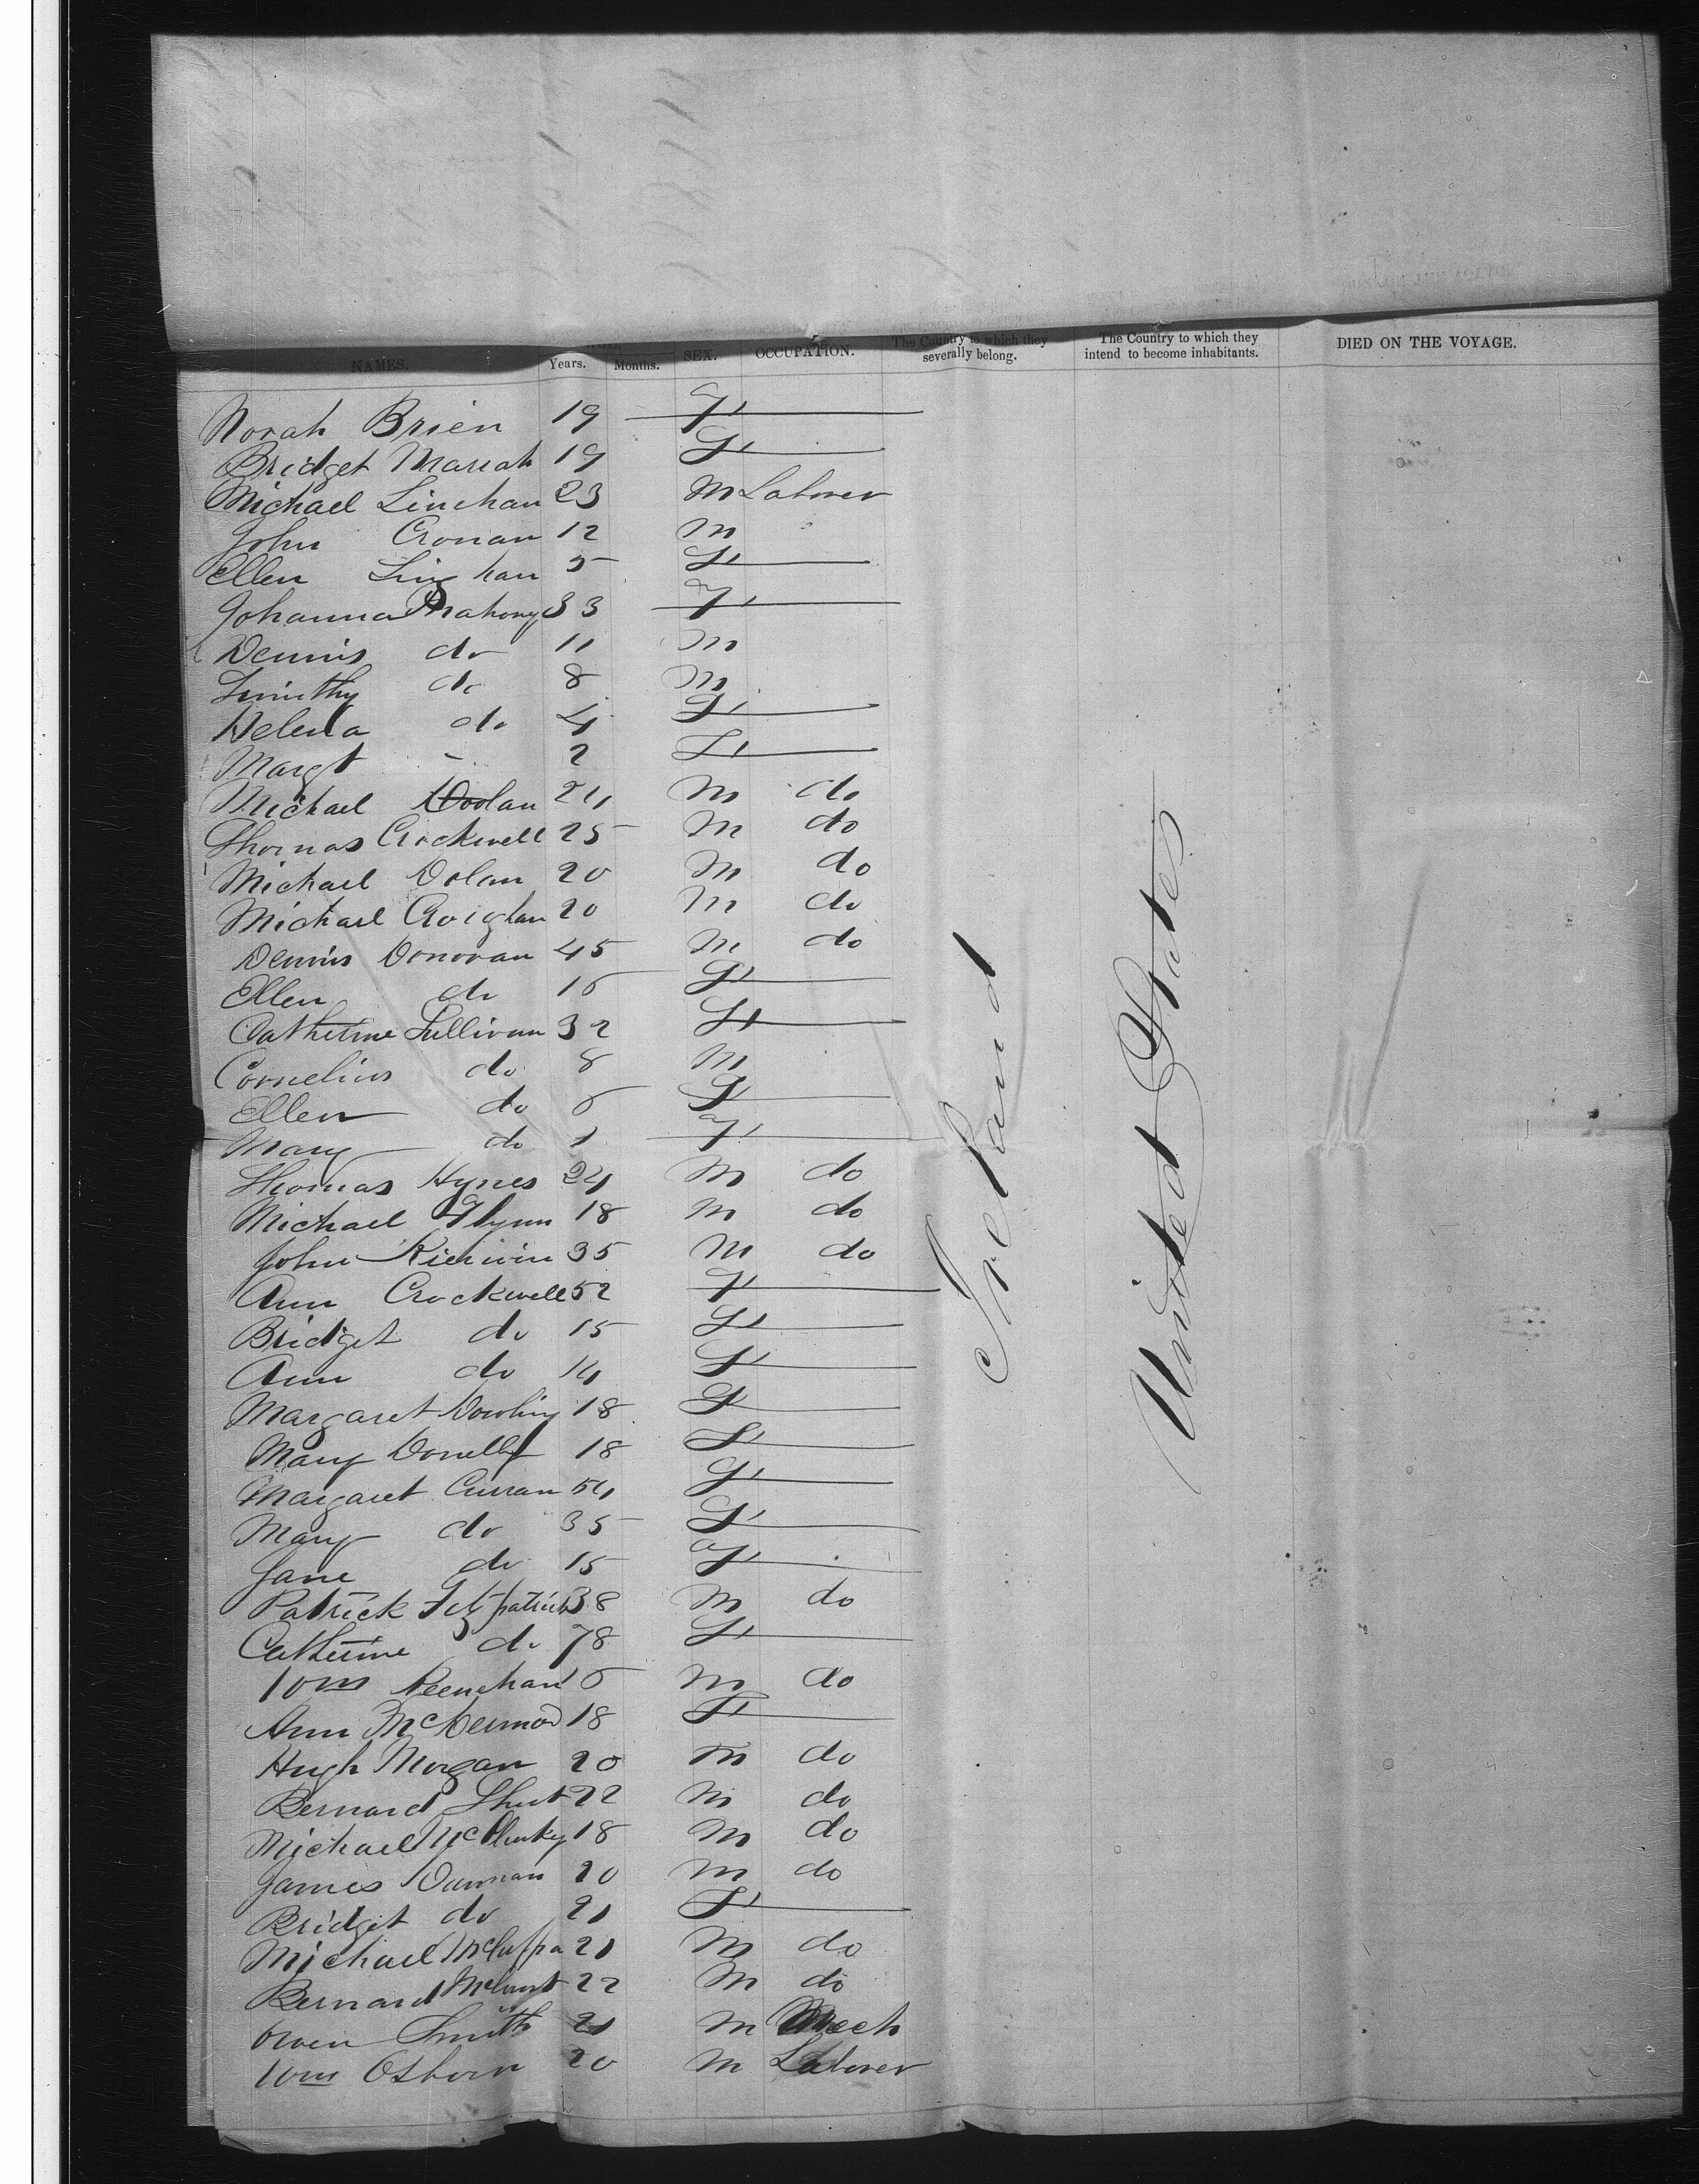 NAMES. Years. Months. SEX. OCCUPATION. The Country to which they severally belong. The Country to which they intend to become inhabitants. DIED ON THE VOYAGE.
Norah Brien 19 F
Bridget Mariah 19 F
Michael Linehan 23 M Laborer
John Cronan 12 M
Ellen Linehan 5 F
Johanna Mahony 33 F
Dennis do 11 M
Timothy do 8 M
Helena do 4 F
Margt - 2 F
Michael Doolan 24 M do
Thomas Crockwell 25 M do
Michael Dolan 20 M do
Michael Croighan 20 M do
Dennis Donovan 45 M do
Ellen do 16 F
Catherine Sullivan 32 F
Cornelius do 8 M
Ellen do 6 F
Mary do 1 F
Thomas Hynes 24 M do
Michael Flynn 18 M do
John Kierwin 35 M do
Ann Crockwell 52 F
Bridget do 15 F
Ann do 14 F
Margaret Dowling 18 F
Mary Donelly 18 F
Margaret Curran 54 F
Mary do 35 F
Jane do 15 F
Patrick Fitzpatrick 38 M do
Catherine do 78 F
Wm Keenehan 16 M do
Ann McDermod 18 F
Hugh Morgan 20 M do
Bernard 22 M do
Michael McClusky 18 M do
James Dunnan 20 M do
Bridget do 21 F
Michael 21 M do
Bernard 22 M do
Owen Smith 21 M Mech
Wm Osborn 20 M Laborer
Ireland
United States